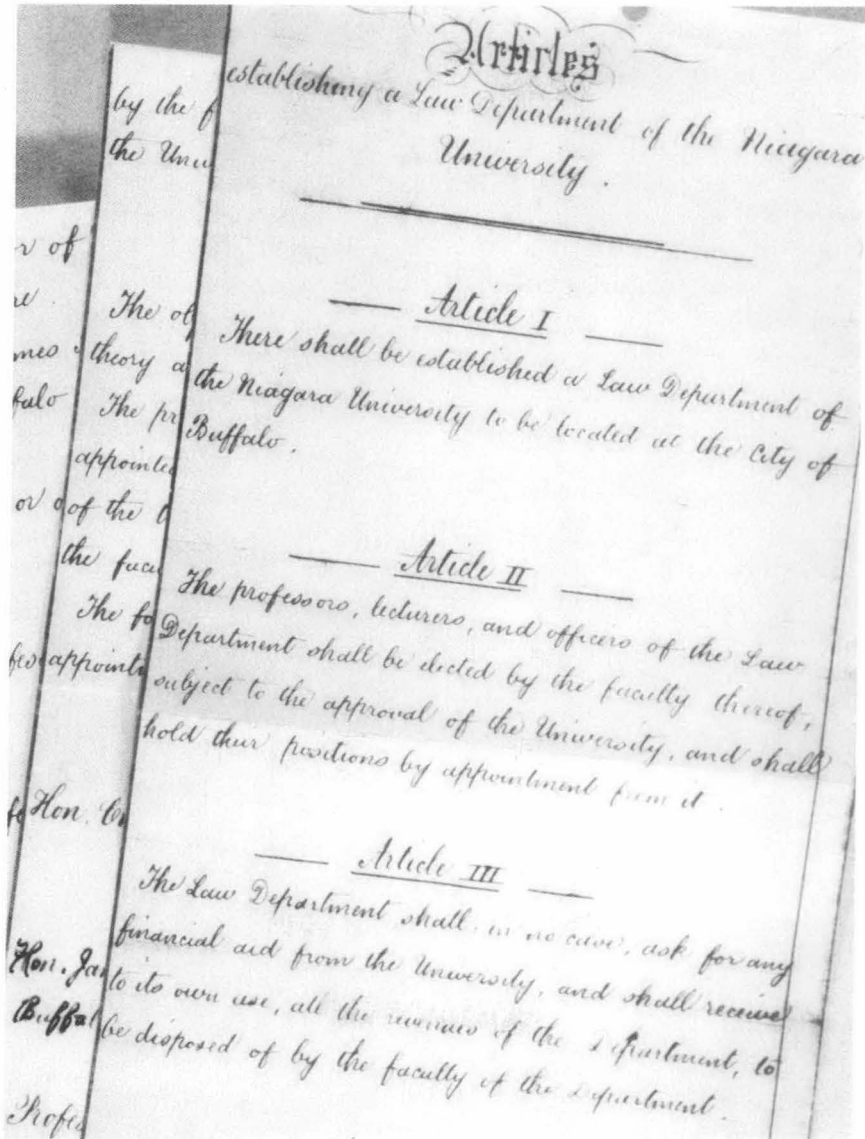 Articles
establishing a Law Department of the Niagara
University.
Article I
There shall be established a Law Department of
the Niagara University to be located at the City of
Buffalo.
Article II
The professors, lecturers, and officers of the Law
Department shall be elected by the faculty thereof,
subject to the approval of the University, and shall
hold their positions by appointment from it.
Article III
The Law Department shall, in no case, ask for any
financial aid from the University, and shall receive
to its own use, all the revenues of the Department, to
be disposed of by the faculty of the Department.
by the
the
The
theory
The
of the
the
The
Hon.
Hon.
of
or